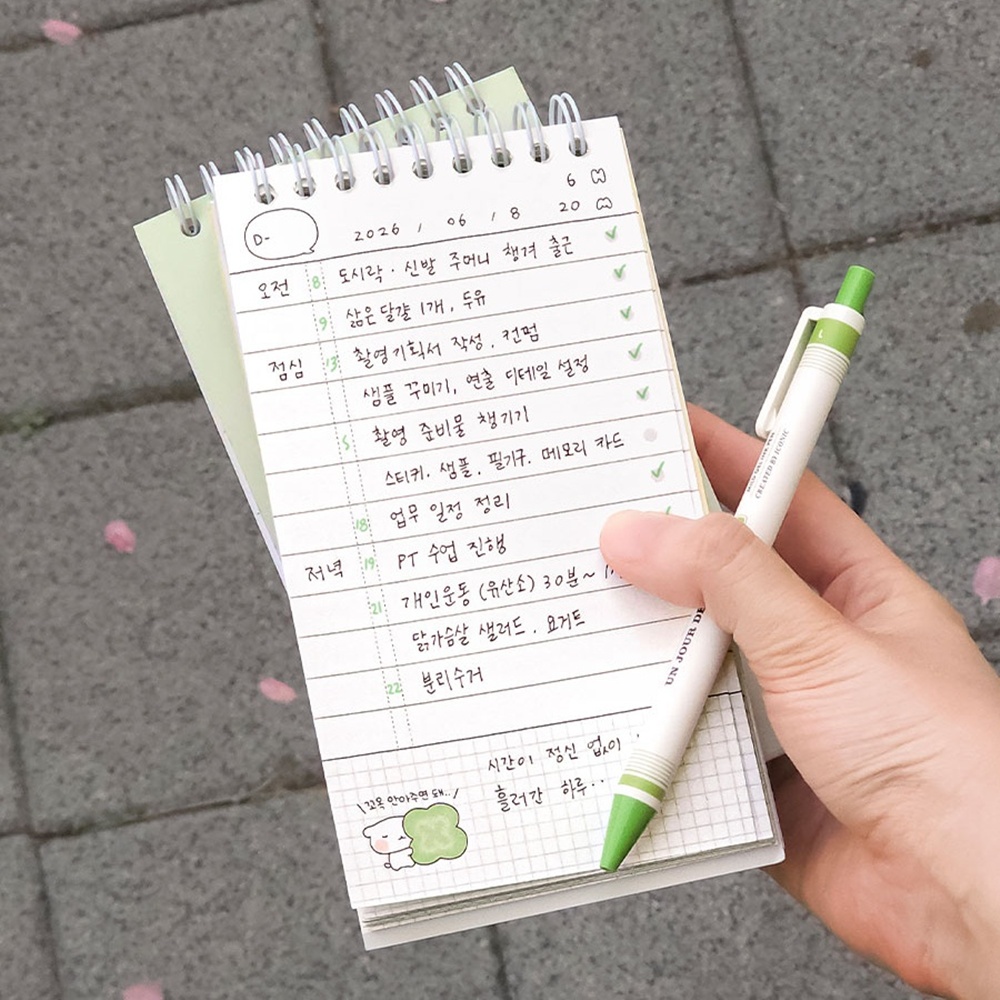 6
D- 2026 / 06 / 8 20
오전 8 도시락 · 신발 주머니 챙겨 출근
9 삶은 달걀 1개, 두유
점심 13 촬영기획서 작성, 컨펌
샘플 꾸미기, 연출 디테일 설정
5 촬영 준비물 챙기기
스티커, 샘플, 필기구, 메모리 카드
18 업무 일정 정리
저녁 19 PT 수업 진행
21 개인운동 (유산소) 30분~
닭가슴살 샐러드, 요거트
22 분리수거
시간이 정신 없이
흘러간 하루..
\꼬옥 안아주면 돼../
CREATED BY ICONIC
UN JOUR DE